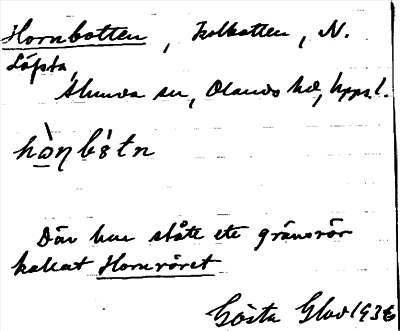 Hornbotten, Kolbotten, N.
Löpsta,
Alunda sn, Olands hd, Upps l.
hòn bòtn
Där har stått ett gränsrör
kallat Hornröret
Gösta Glad 1936